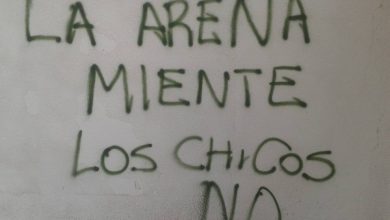 LA ARENA
MIENTE
LOS CHiCOS
NO